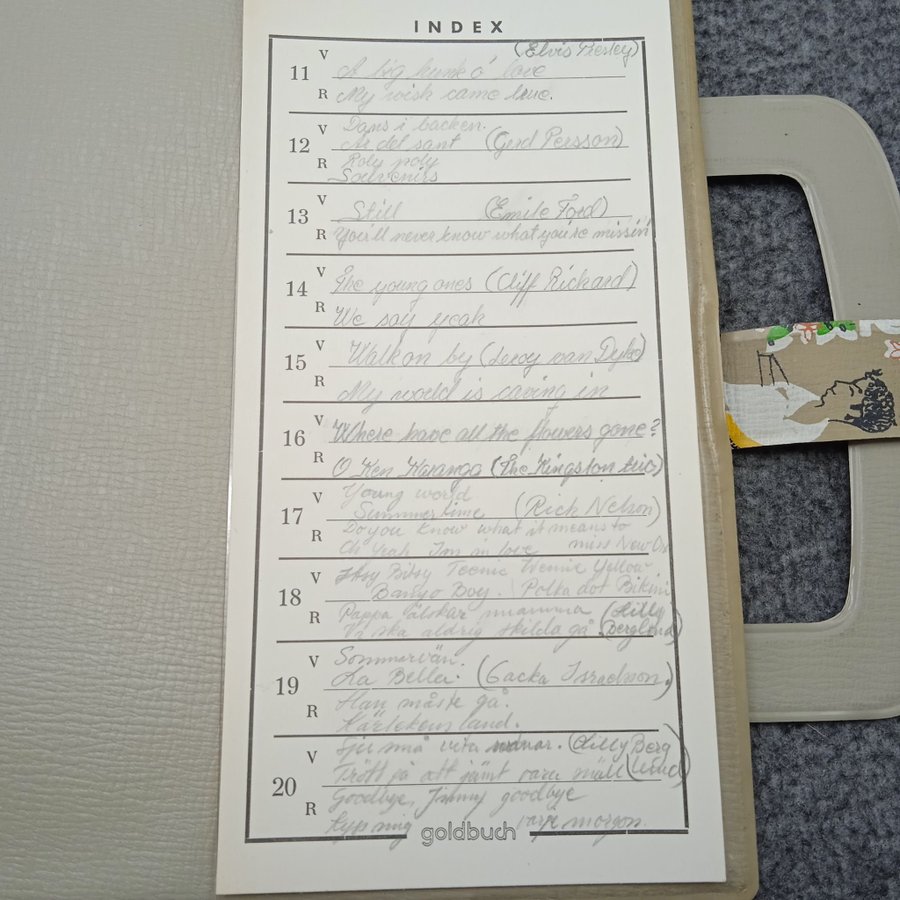 INDEX
(Elvis Presley)
11 V A big hunk o' love
R My wish came true.
12 V Dans i backen.
Är det sant (Gerd Persson)
R Roly poly
Souvenirs
13 V Still (Emile Ford)
R You'll never know what you're missin'
14 V The young ones (Cliff Richard)
R We say yeah
15 V Walk on by (Leroy van Dyke)
R My world is caving in
16 V Where have all the flowers gone?
R O Ken Karanga (The Kingston trio)
17 V Young world
Summertime (Rick Nelson)
R Do you know what it means to
Oh yeah I'm in love miss New Or
18 V Itsy Bitsy Teenie Weenie Yellow
Banjo Boy. Polka dot Bikini
R Pappa älskar mamma (Lilly
Vi ska aldrig skilda gå Berglund)
19 V Sommarvän.
La Bella. (Gacka Israelsson)
R Han måste gå.
Kärlekens land.
20 V små vita (Lilly Berg
Trött på att jämt vara snäll lund)
R Goodbye, Jimmy goodbye
varje morgon.
goldbuch